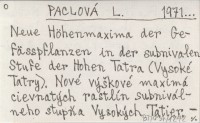 PACLOVÁ L. 1971...
Neue Höhenmaxima der Ge-
fässpflanzen in der subnivalen
Stufe der Hohen Tatra (Vysoké
Tatry). Nové výškové maximá
cievnatých rastlín subnivál-
neho stupňa Vysokých Tatier. -